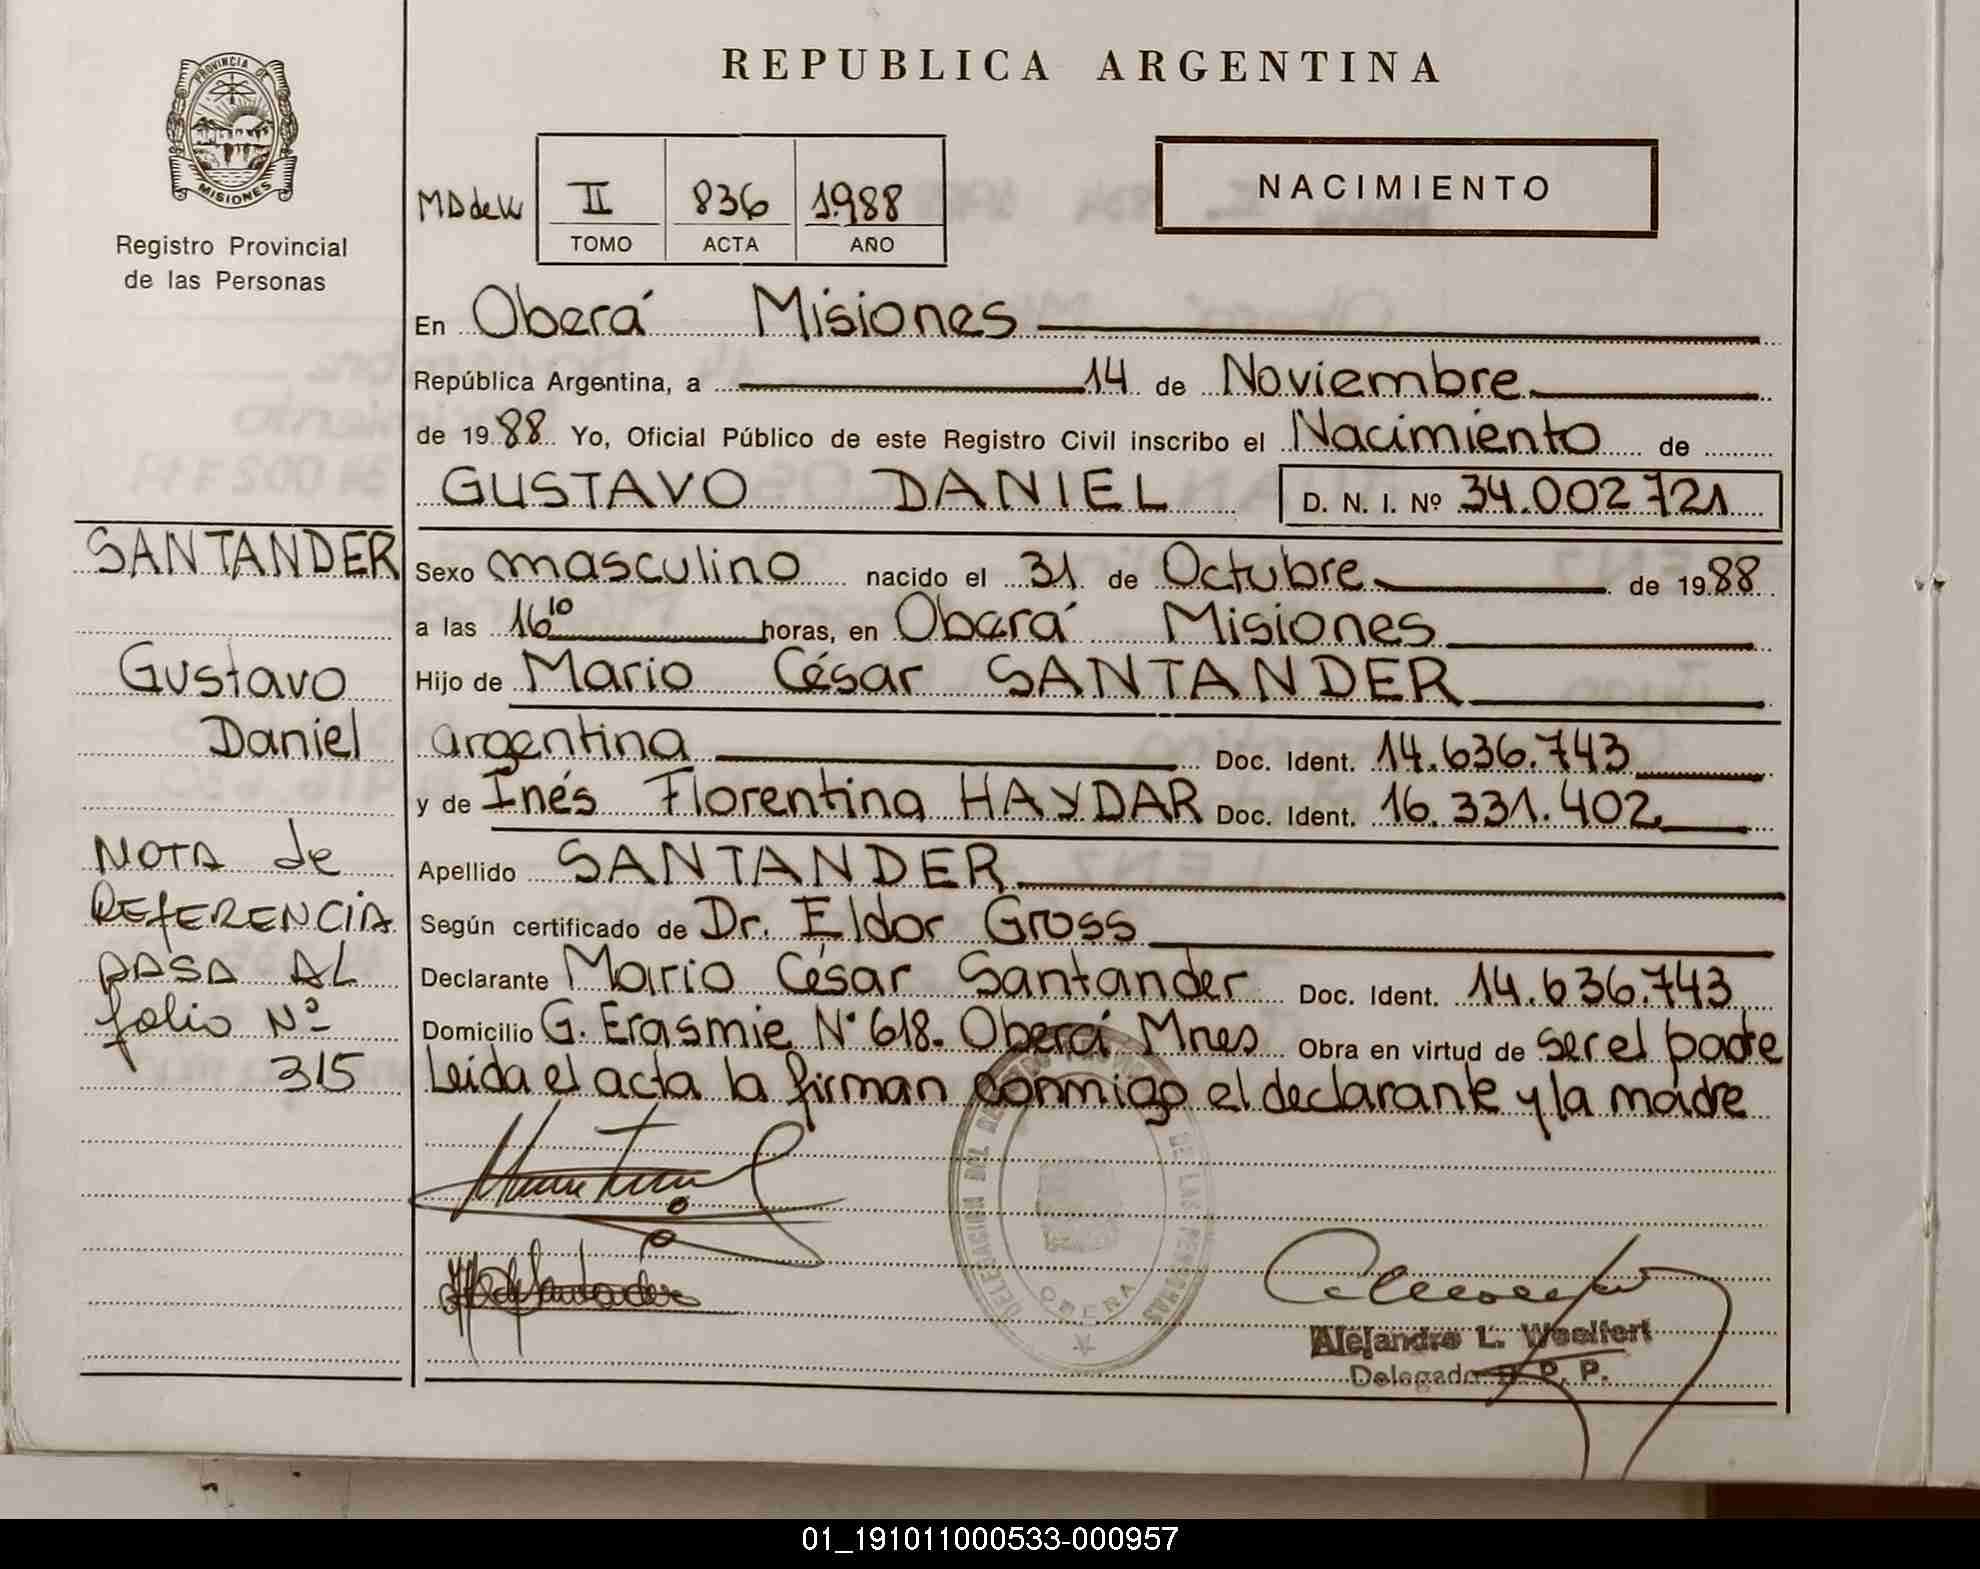 PROVINCIA DE
MISIONES
Registro Provincial
de las Personas
REPUBLICA ARGENTINA
MD de W
II 836 1.988
TOMO ACTA AÑO
NACIMIENTO
En Oberá Misiones
República Argentina, a 14 de Noviembre
de 1988 Yo, Oficial Público de este Registro Civil inscribo el Nacimiento de
GUSTAVO DANIEL D. N. I. Nº 34.002721
Sexo masculino nacido el 31 de Octubre de 1988
a las 16 10 horas, en Oberá Misiones
Hijo de Mario César SANTANDER
argentina Doc. Ident. 14.636.743
y de Inés Florentina HAYDAR Doc. Ident. 16.331.402
Apellido SANTANDER
Según certificado de Dr. Eldor Gross
Declarante Mario César Santander Doc. Ident. 14.636.743
Domicilio G. Erasmie Nº 618. Oberá Mnes Obra en virtud de ser el padre
Leída el acta la firman conmigo el declarante y la madre
SANTANDER
Gustavo
Daniel
NOTA de
REFERENCIA
PASA AL
folio Nº
315
DELEGACION DEL DE LAS PERSONAS
OBERA
Alejandro L. Woelfert
Delegado R. P. P.
01_191011000533-000957